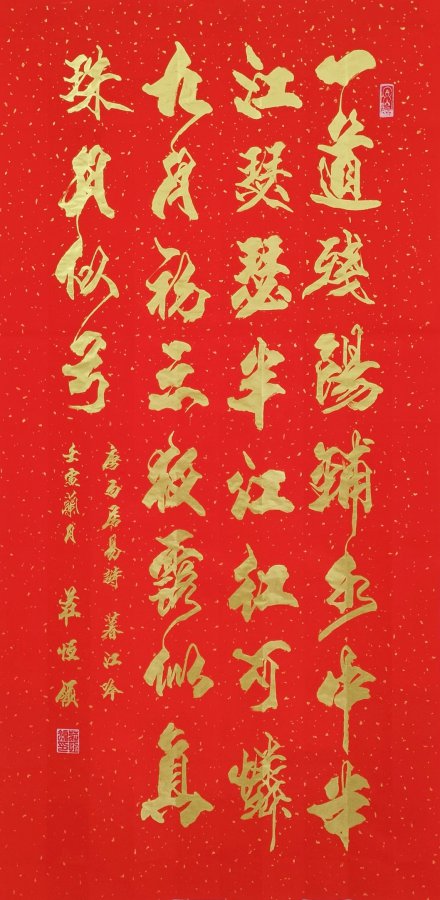 一道残陽鋪水中半
江瑟瑟半江紅可憐
九月初三夜露似真
珠月似弓
唐白居易詩 暮江吟
壬寅蘭月 莊恒